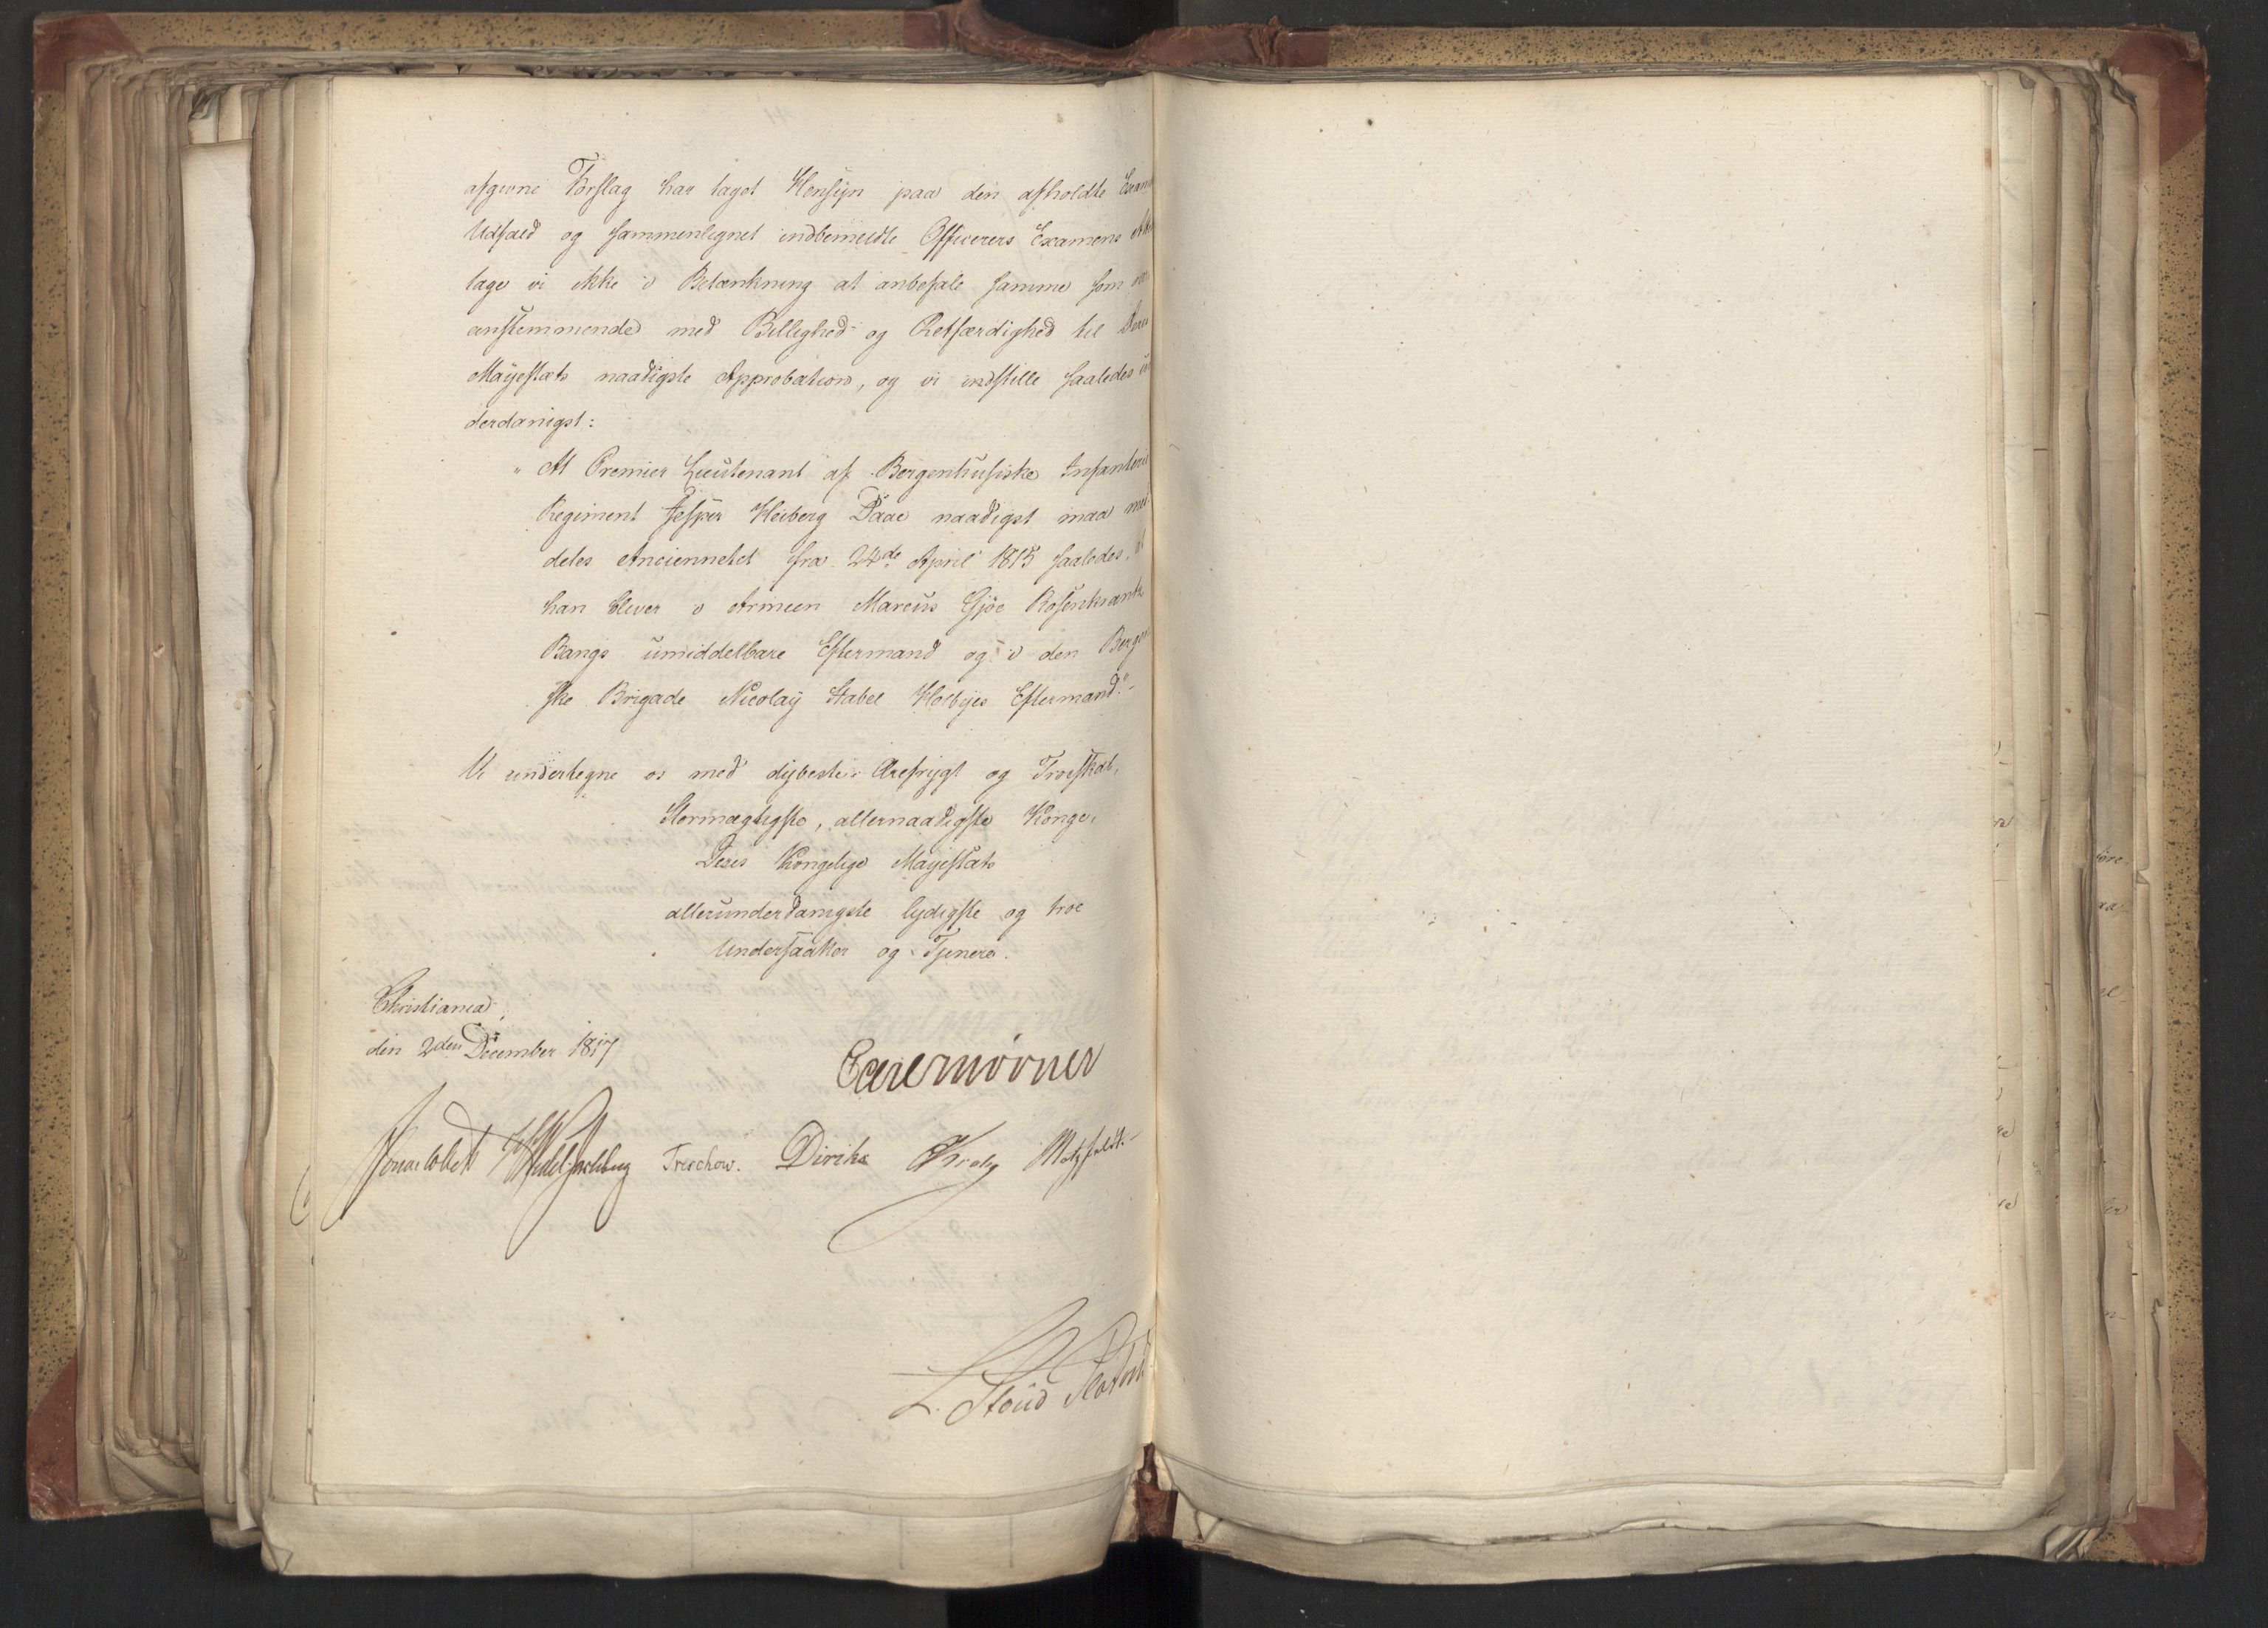 afgivne Forslag har taget Hensyn paa den afholdte
Udfald og sammenlignet indbemeldte Officerers Examens
tage vi ikke i Betænkning at anbefale samme som
ensstemmende med Billighed og Retfærdighed til Deres
Majestæts naadigste Approbation, og vi indstille saaledes un
derdanigst:
"At Premier Lieutenant af Bergenhusiske Infanterie
Regiment Jesper Heiberg Daae naadigst maa med
deles Anciennetet fra 24de April 1815 saaledes, at
han bliver i Armeen Marcus Gjöe Rosenkrantz
Bangs umiddelbare Eftermand og i den Bergen
ske Brigade Nicolay Stabel Holbyes Eftermand."
Vi undertegne os med dybeste Ærefrygt og Troeskab,
Stormægtigste, allernaadigste Konge,
Deres Kongelige Mayestæts
allerunderdanigste lydigste og troe
Undersaatter og Tjenere.
Christiania,
den 2den December 1817
Carl Mörner
Jonas Collett HWedelJarlsberg Treschow. Diriks Krohg Motzfeldt
L. Stoud Platou